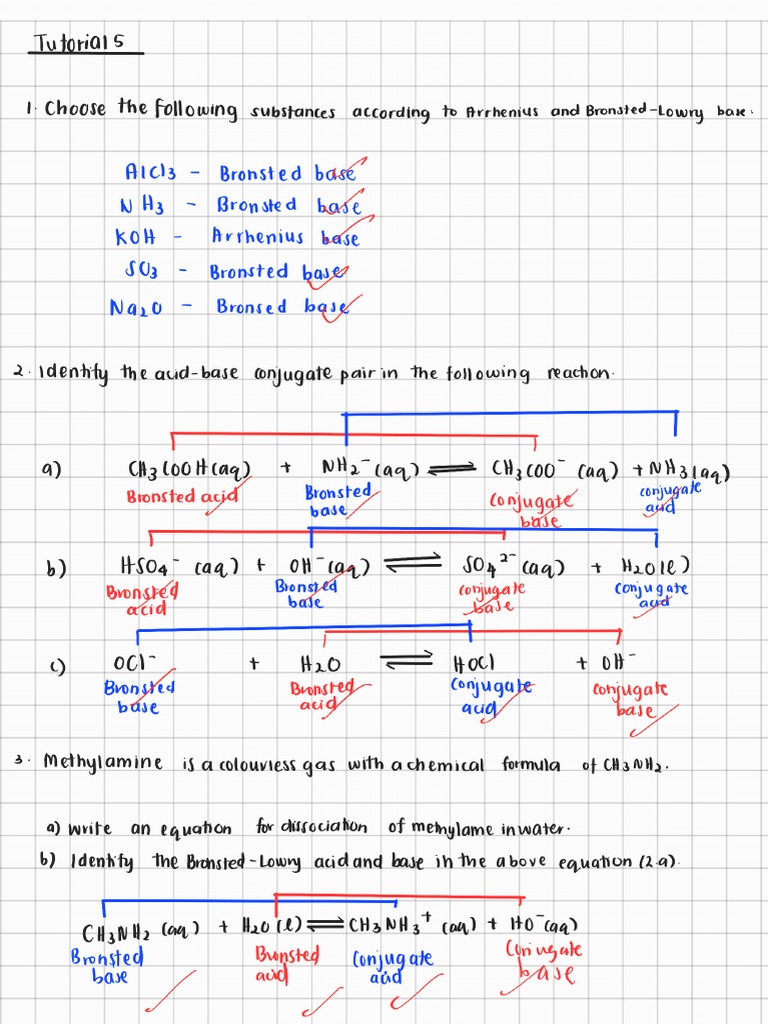 Tutorial 5
1. Choose the following substances according to Arrhenius and Bronsted-Lowry base.
AlCl3 - Bronsted base
NH3 - Bronsted base
KOH - Arrhenius base
SO3 - Bronsted base
Na2O - Bronsed base
2. Identify the acid-base conjugate pair in the following reaction.
a) CH3COOH(aq) + NH2⁻(aq) ⇌ CH3COO⁻ (aq) + NH3(aq)
Bronsted acid Bronsted base conjugate base conjugate acid
b) HSO4⁻ (aq) + OH⁻(aq) ⇌ SO4²⁻(aq) + H2O(l)
Bronsted acid Bronsted base conjugate base conjugate acid
c) OCl⁻ + H2O ⇌ HOCl + OH⁻
Bronsted base Bronsted acid Conjugate acid conjugate base
3. Methylamine is a colourless gas with a chemical formula of CH3NH2.
a) write an equation for dissociation of methylame in water.
b) Identify the Bronsted-Lowry acid and base in the above equation (2.a).
CH3NH2 (aq) + H2O(l) ⇌ CH3NH3⁺ (aq) + HO⁻(aq)
Bronsted base Bronsted acid Conjugate acid Conjugate base